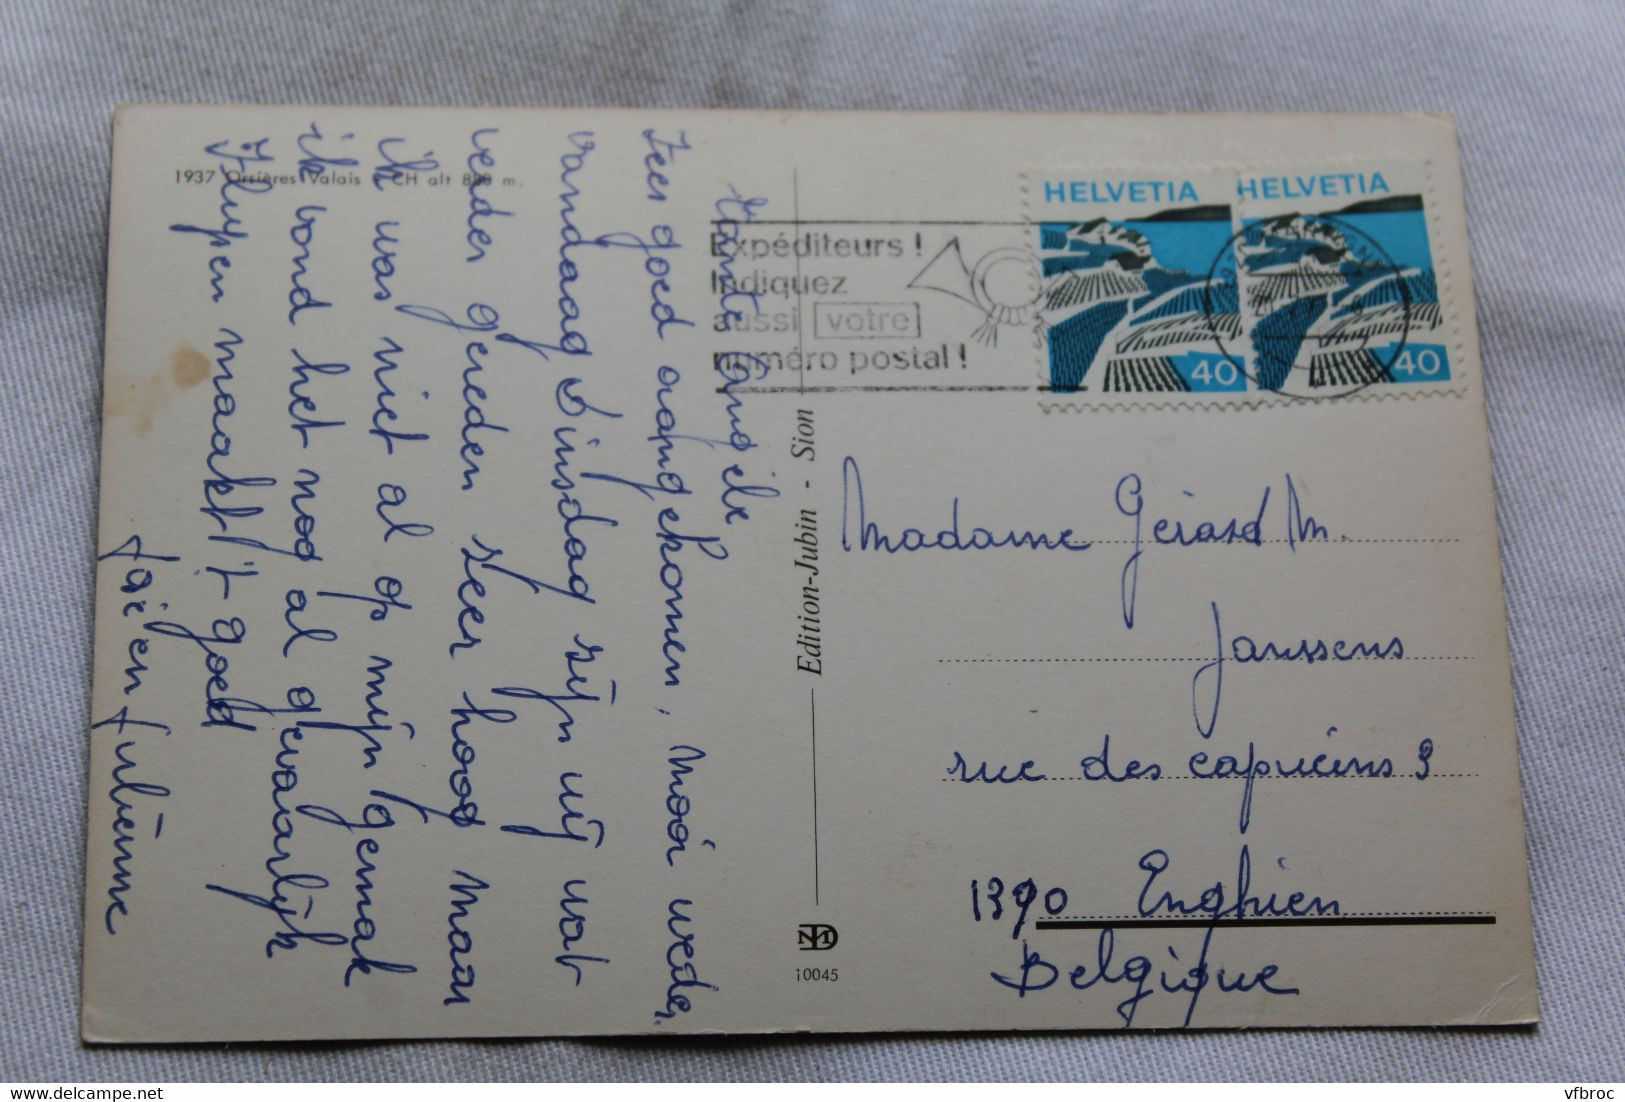 1937 Orsières Valais CH alt 880 m.
Tante Angèle
Zeer goed aangekomen, mooi weder.
Vandaag Dinsdag zijn wij wat
verder gereden zeer hoog maar
ik was niet al op mijn gemak
ik vond het nog al gevaarlijk
Jhupen maakt 't goed
en
Edition-Jubin - Sion
10045
Expéditeurs !
Indiquez
aussi votre
numéro postal !
HELVETIA
40
HELVETIA
40
Madame Gérard M.
Janssens
rue des capucins 9
1390 Enghien
Belgique
vfbroc